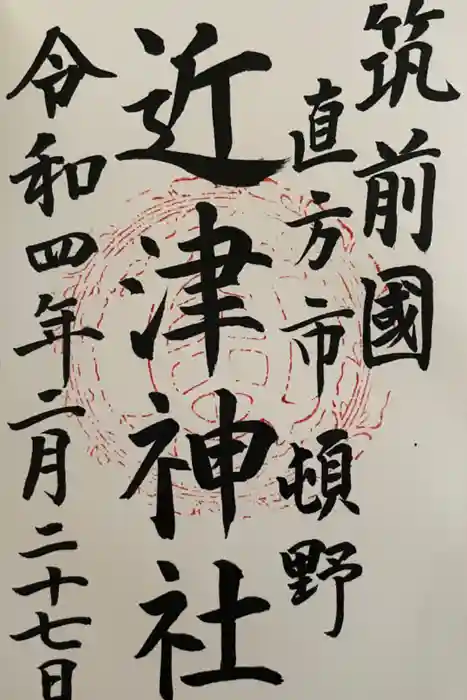 筑前國
直方市頓野
近津神社
令和四年二月二十七日